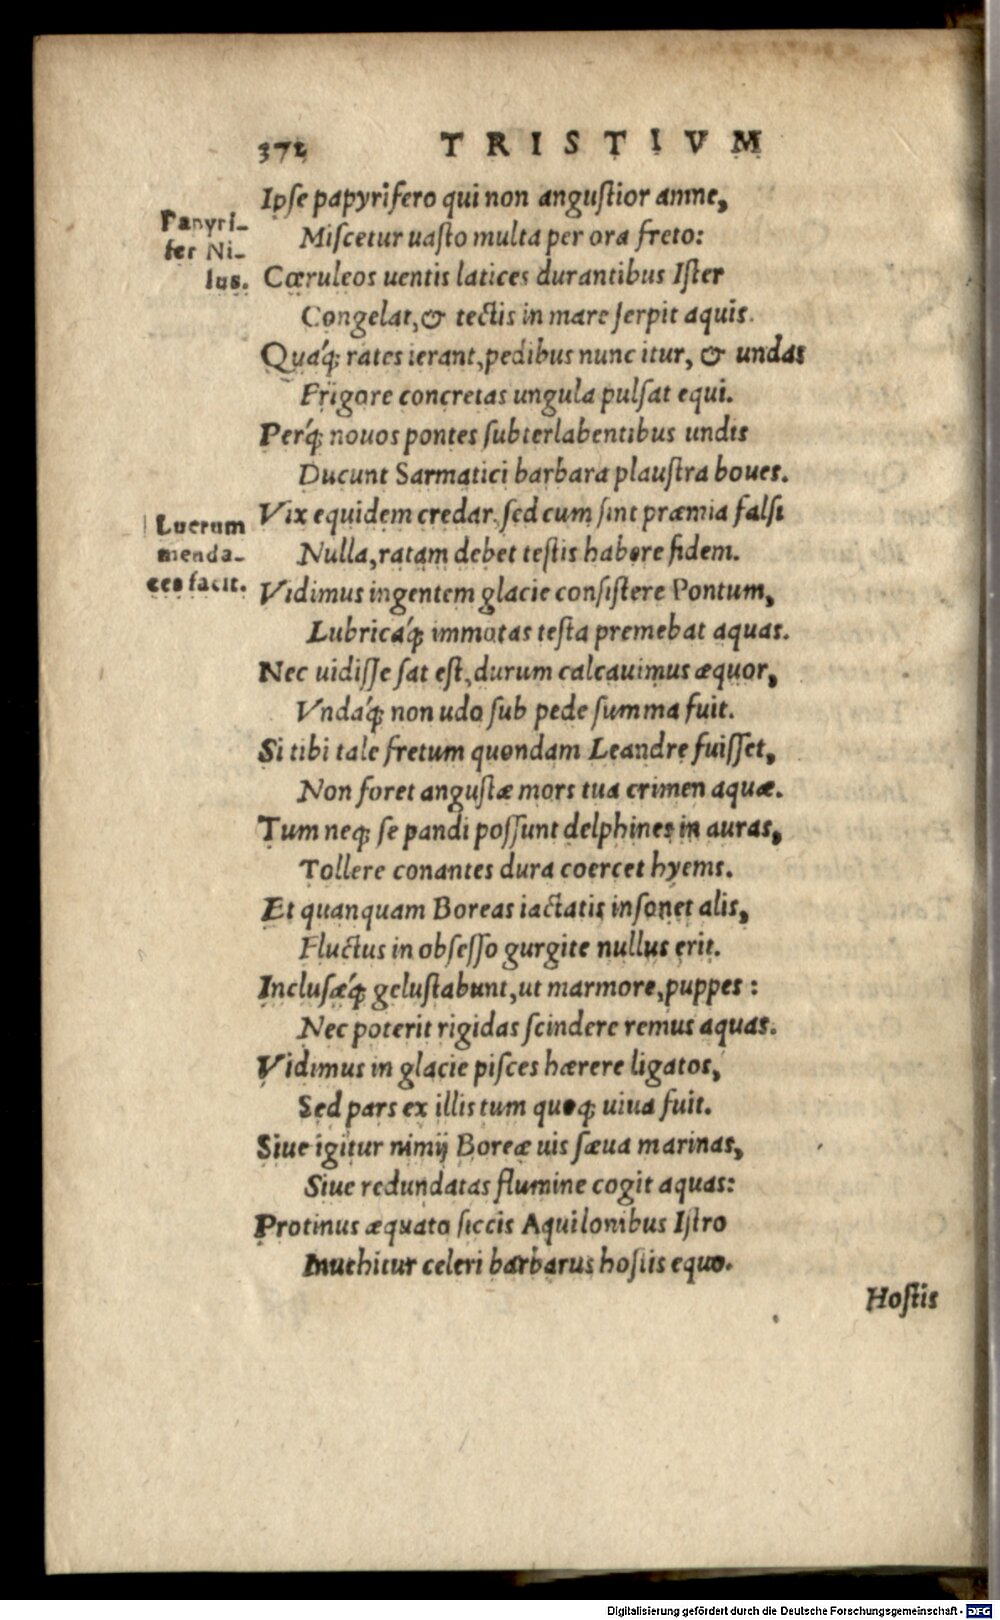 372 TRISTIVM
Ipſe papyrifero qui non anguſtior amne,
Papyri-
fer Ni-
lus.
Miſcetur uaſto multa per ora freto:
Cœruleos uentis latices durantibus Iſter
Congelat, & tectis in mare ſerpit aquis.
Quáq; rates ierant, pedibus nunc itur, & undas
Frigore concretas ungula pulſat equi.
Perq́; nouos pontes ſubterlabentibus undis
Ducunt Sarmatici barbara plauſtra boues.
Vix equidem credar, ſed cum ſint præmia falſi
Lucrum
menda-
ces facit.
Nulla, ratam debet teſtis habere fidem.
Vidimus ingentem glacie conſiſtere Pontum,
Lubricáq; immotas teſta premebat aquas.
Nec uidiſſe ſat eſt, durum calcauimus æquor,
Vndáq; non udo ſub pede ſumma fuit.
Si tibi tale fretum quondam Leandre fuiſſet,
Non foret anguſtæ mors tua crimen aquæ.
Tum neq; ſe pandi poſſunt delphines in auras,
Tollere conantes dura coercet hyems.
Et quanquam Boreas iactatis inſonet alis,
Fluctus in obſeſſo gurgite nullus erit.
Incluſæq́; gelu ſtabunt, ut marmore, puppes:
Nec poterit rigidas ſcindere remus aquas.
Vidimus in glacie piſces hærere ligatos,
Sed pars ex illis tum quoq; uiua fuit.
Siue igitur nimij Boreæ uis ſæua marinas,
Siue redundatas flumine cogit aquas:
Protinus æquato ſiccis Aquilonibus Iſtro
Inuehitur celeri barbarus hoſtis equo.
Hoſtis
Digitalisierung gefördert durch die Deutsche Forschungsgemeinschaft - DFG